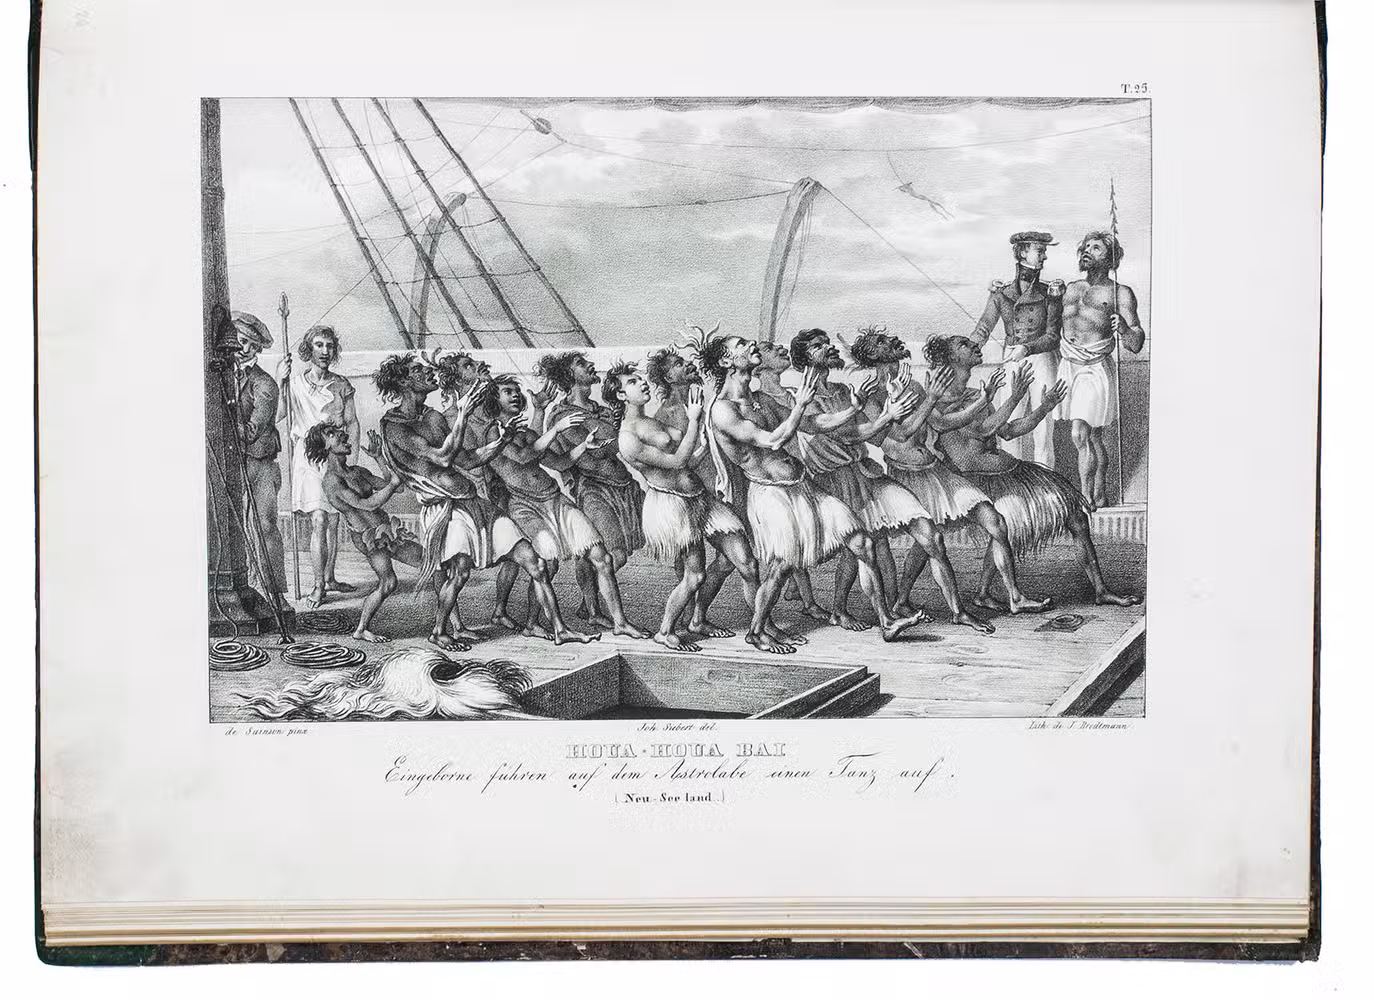 T. 25.
de Sainson pinx
Joh. Siebert del.
Lith. de J. Brodtmann
HOUA-HOUA BAI
Eingeborne führen auf dem Astrolabe einen Tanz auf.
(Neu-Seeland.)